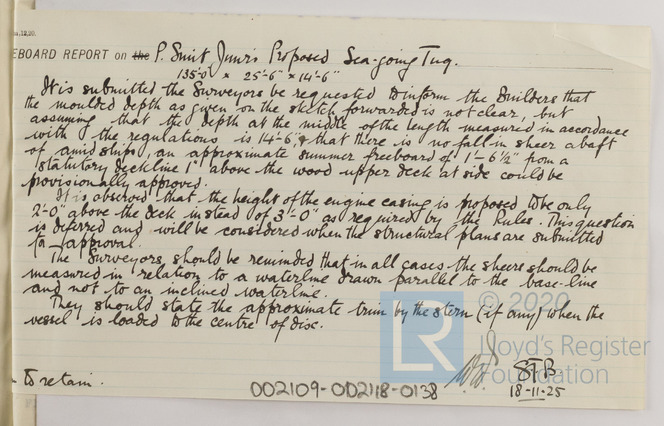 EBOARD REPORT on the P. Smit Junr's Proposed Sea-going Tug.
135'-0" x 25'-6" x 14'-6"
It is submitted the Surveyors be requested to inform the Builders that
the moulded depth as given on the sketch forwarded is not clear, but
assuming that the depth at the middle of the length measured in accordance
with the regulations is 14'-6", & that there is no fall in sheer abaft
of amidships, an approximate summer freeboard of 1'-6½" from a
statutory deckline 1" above the wood upper deck at side could be
provisionally approved.
It is observed that the height of the engine casing is proposed to be only
2'-0" above the deck instead of 3'-0" as required by the Rules. This question
is deferred and will be considered when the structural plans are submitted
for approval.
The Surveyors should be reminded that in all cases the sheers should be
measured in relation to a waterline drawn parallel to the base-line
and not to an inclined waterline.
They should state the approximate trim by the stern (if any) when the
vessel is loaded to the centre of disc.
© 2020
LR
Lloyd's Register
Foundation
to retain.
002109-002118-0138
STB
18-11-25